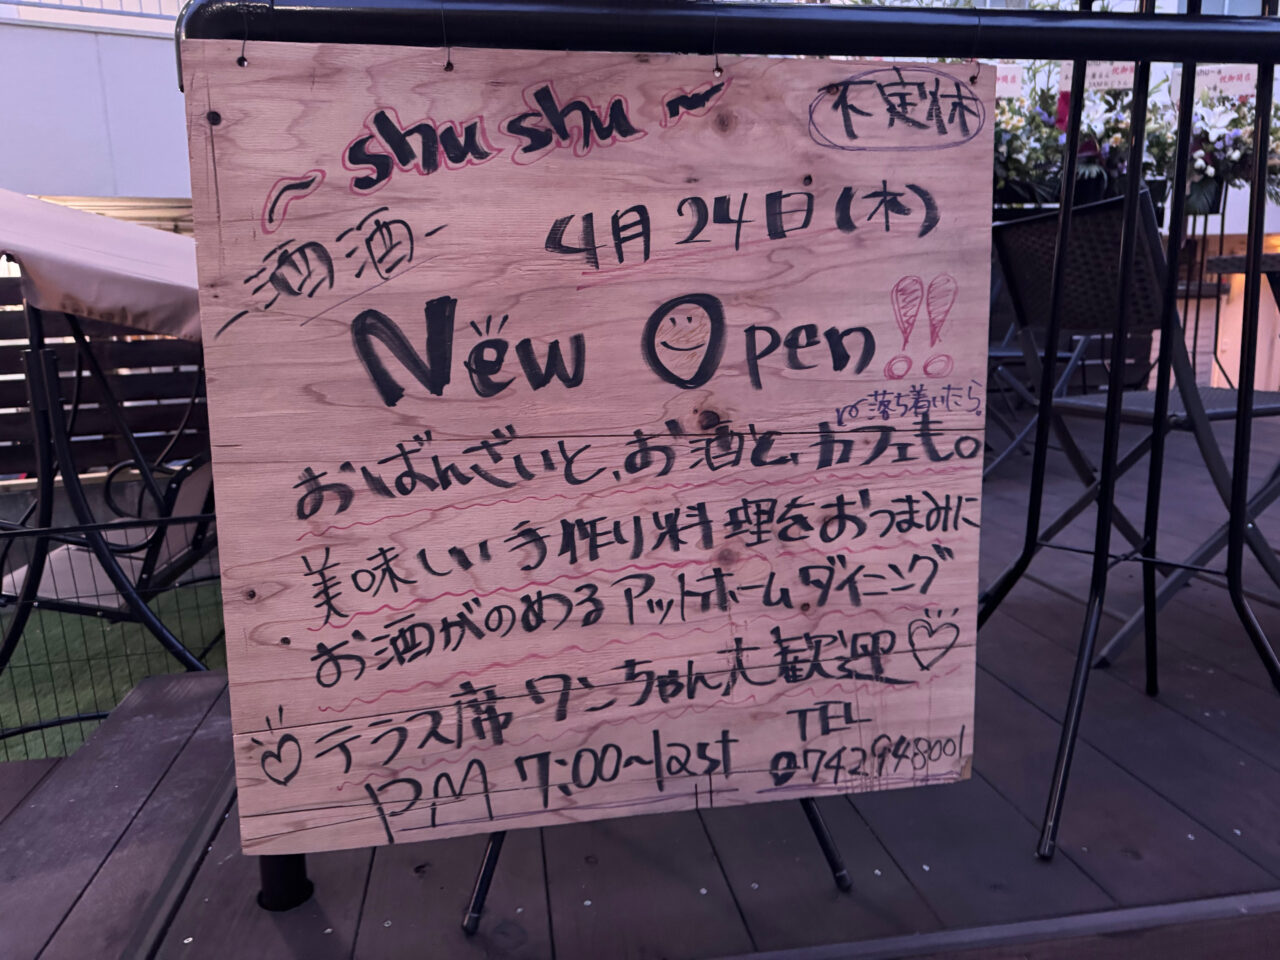 ~shu shu~
不定休
酒酒
4月24日(木)
New Open!!
落ち着いたら。
おばんざいと、お酒と、カフェも。
美味しい手作り料理をおつまみに
お酒がのめるアットホームダイニング
テラス席ワンちゃん大歓迎
TEL
PM 7:00~last 0742948001
祝御開店
祝御開店